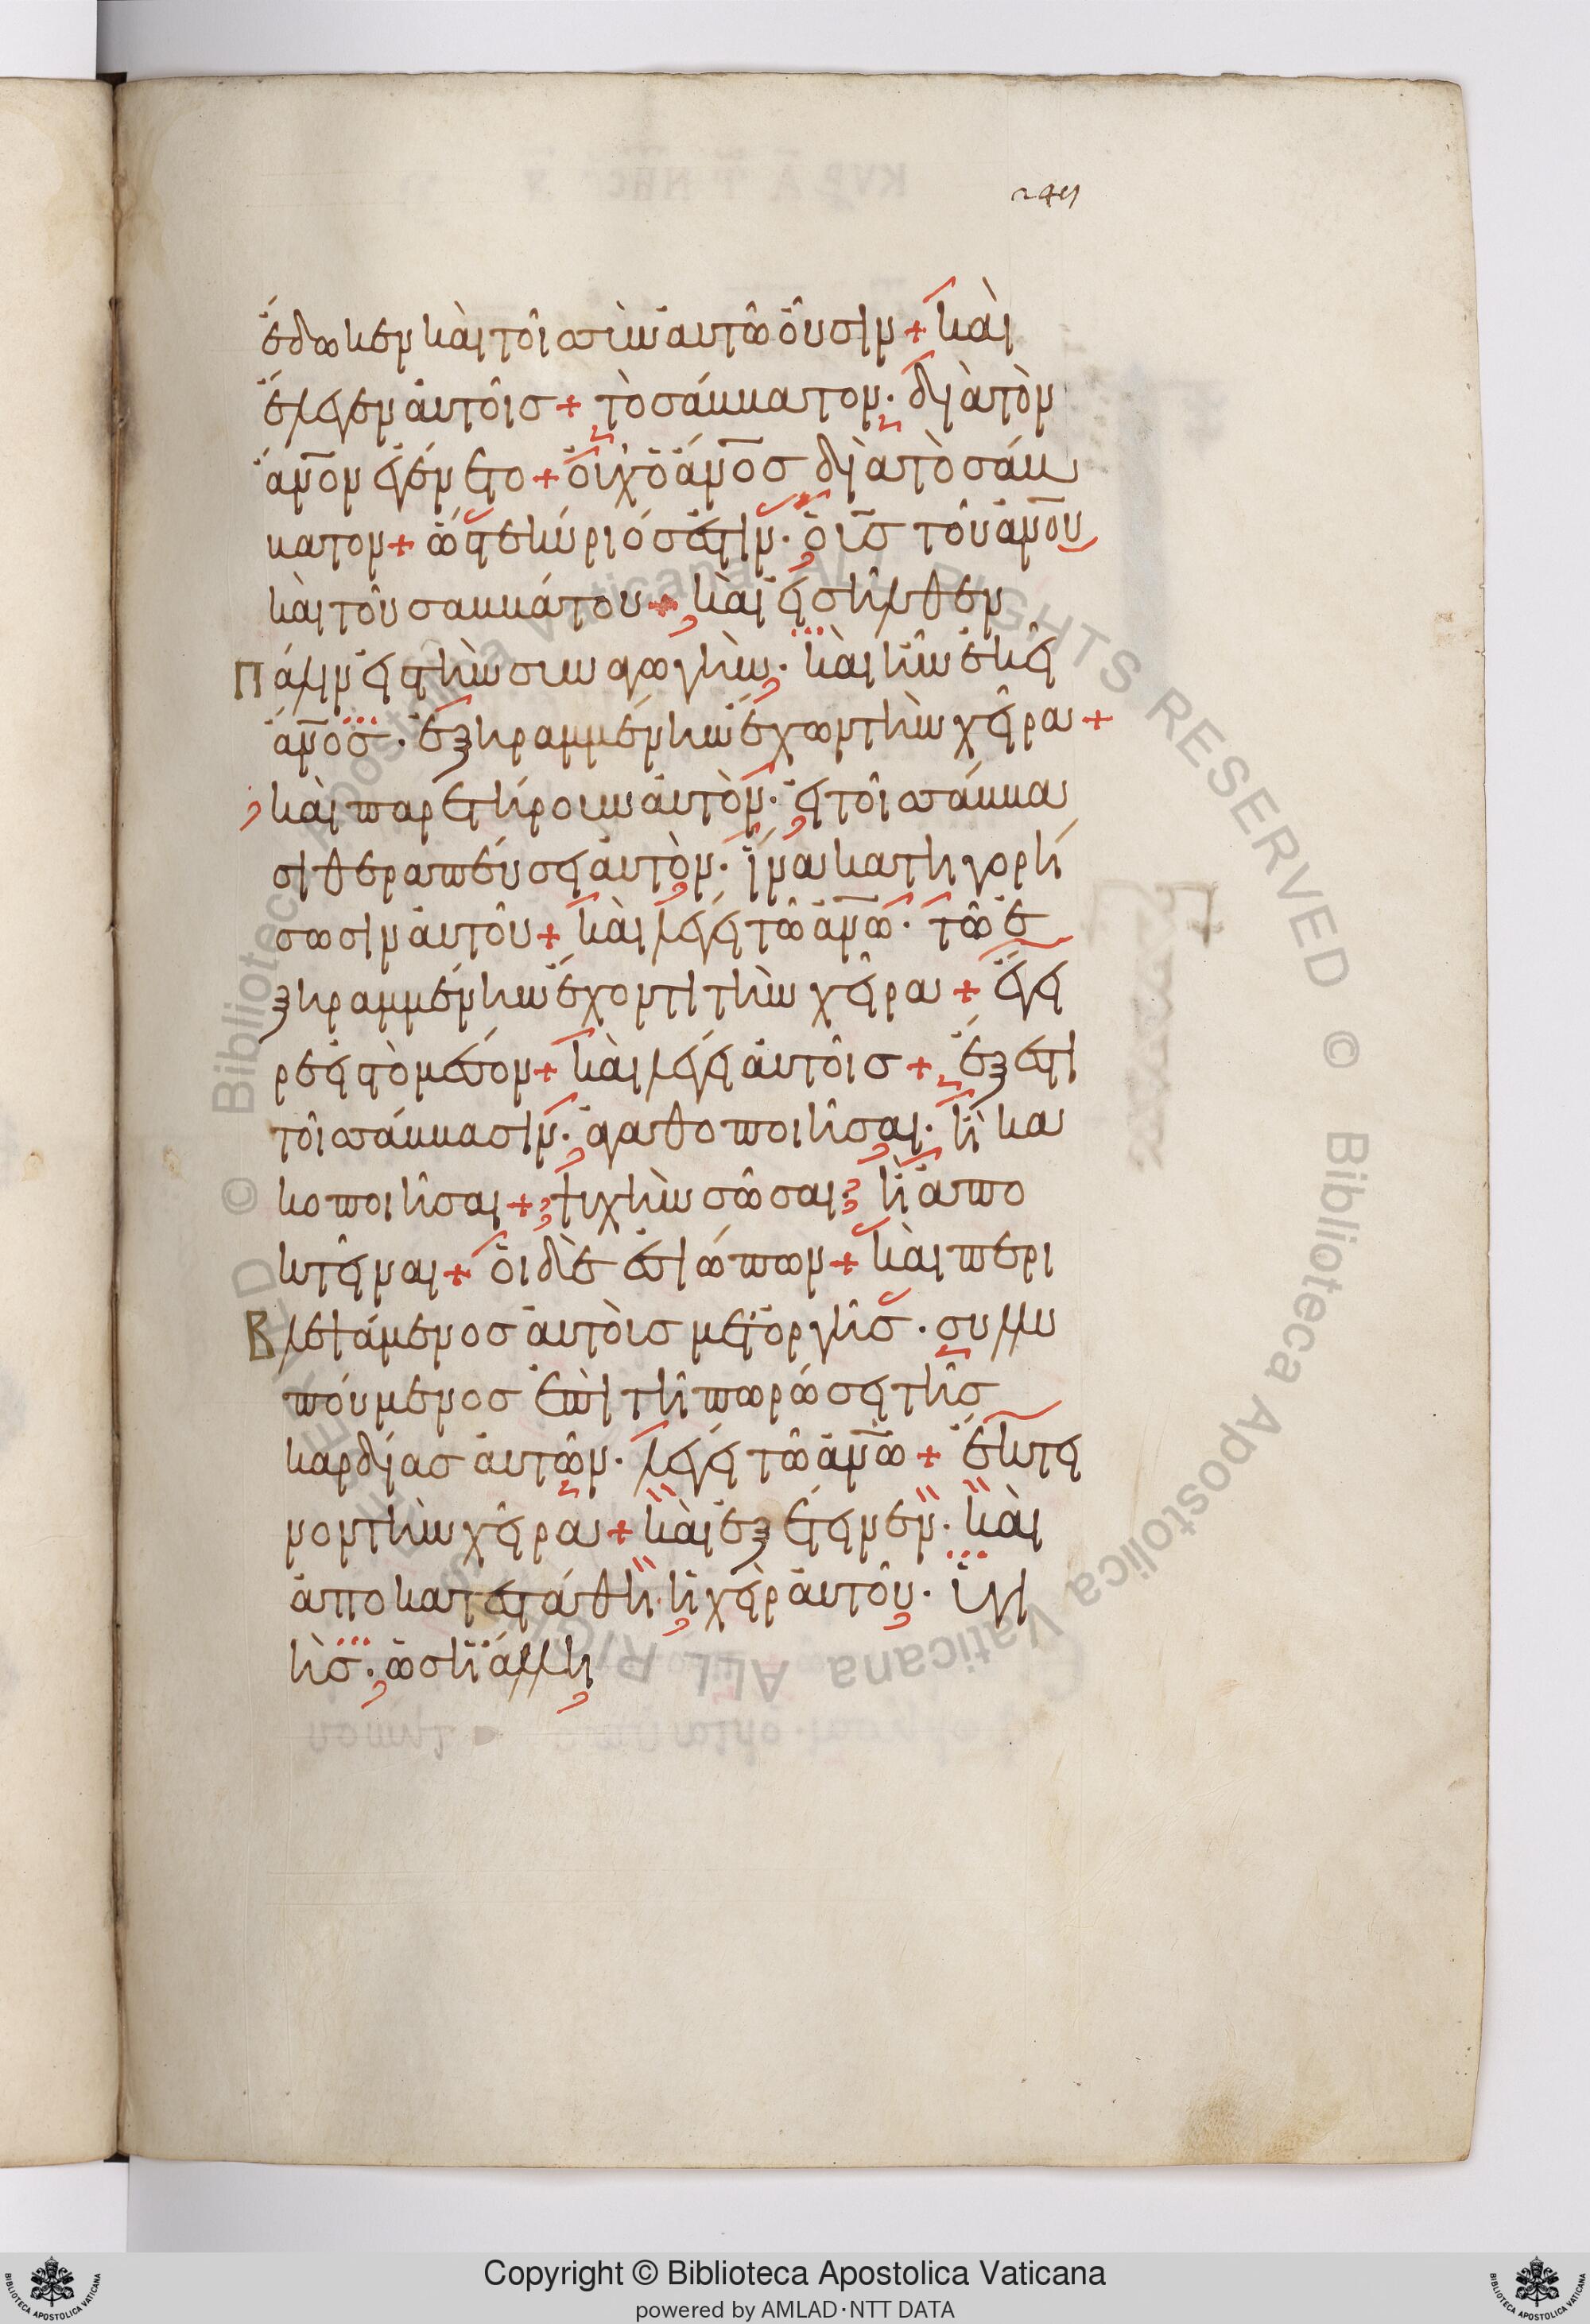 249
ἔδωκεν καὶ τοῖς σὺν αὐτῶ οὖσιν + καὶ
ἔλεγεν αὐτοῖς + τὸ σάββατον· διὰ τὸν
ἄν̅ο̅ν ἐγένετο + οὐχ ὁ ἄν̅ο̅ς διὰ τὸ σάβ
βατον + ὥστε κύριός ἐστιν· ὁ υ̅ς̅ τοῦ ἀν̅ο̅υ
καὶ τοῦ σαββάτου + καὶ εἰσῆλθεν
Πάλιν εἰς τὴν συναγωγὴν· καὶ ἦν ἐκεῖ
ἄν̅ο̅ς· ἐξηραμμένην ἔχων τὴν χεῖρα +
καὶ παρετήρουν αὐτὸν· εἰ τοῖς σάββα
σι θεραπεύσει αὐτὸν· ἵνα κατηγορή
σωσιν αὐτοῦ + καὶ λέγει τῶ ἀν̅ω̅· τῶ ἐ
ξηραμμένην ἔχοντι τὴν χεῖρα + ἔγει
ρε εἰς τὸ μέσον + καὶ λέγει αὐτοῖς + ἔξεστι
τοῖς σάββασιν· ἀγαθοποιῆσαι· ἢ κα
κοποιῆσαι + ψυχὴν σῶσαι· ἢ ἀπο
κτεῖναι + οἱ δὲ ἐσιώπων + καὶ περι
Βλεψάμενος αὐτοὺς μετ' ὀργῆς· συλλυ
πούμενος ἐπὶ τῆ πωρώσει τῆς
καρδίας αὐτῶν· λέγει τῶ ἀν̅ω̅ + ἔκτει
νον τὴν χεῖρα + καὶ ἐξέτεινεν· καὶ
ἀποκατεστάθη ἡ χεὶρ αὐτοῦ· ὑγι
ὴς· ὡς ἡ ἄλλη
Copyright © Biblioteca Apostolica Vaticana
powered by AMLAD·NTT DATA
© Biblioteca Apostolica Vaticana ALL RIGHTS RESERVED © Biblioteca Apostolica Vaticana ALL RIGHTS RESERVED